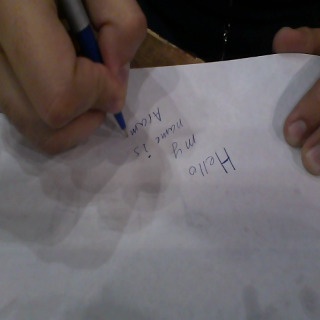 Hello
my
name is
Aram